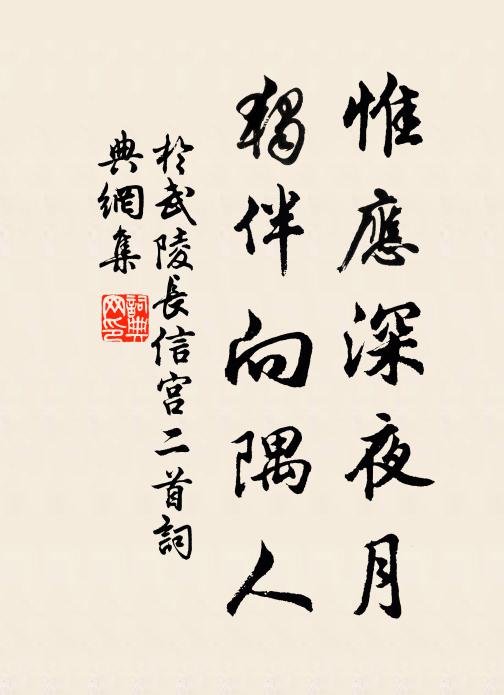 惟應深夜月
獨伴向隅人
於武陵長信宮二首詞
典網集
詞典網印